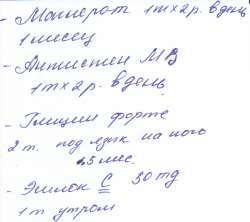 - Магнерот 1т х 2 р. в день
1 месяц
- Антистен МВ
1т х 2 р. в день
- Глицин форте
2 т. под язык на ночь
1,5 мес.
- Эгилок С 50 mg
1 т утром